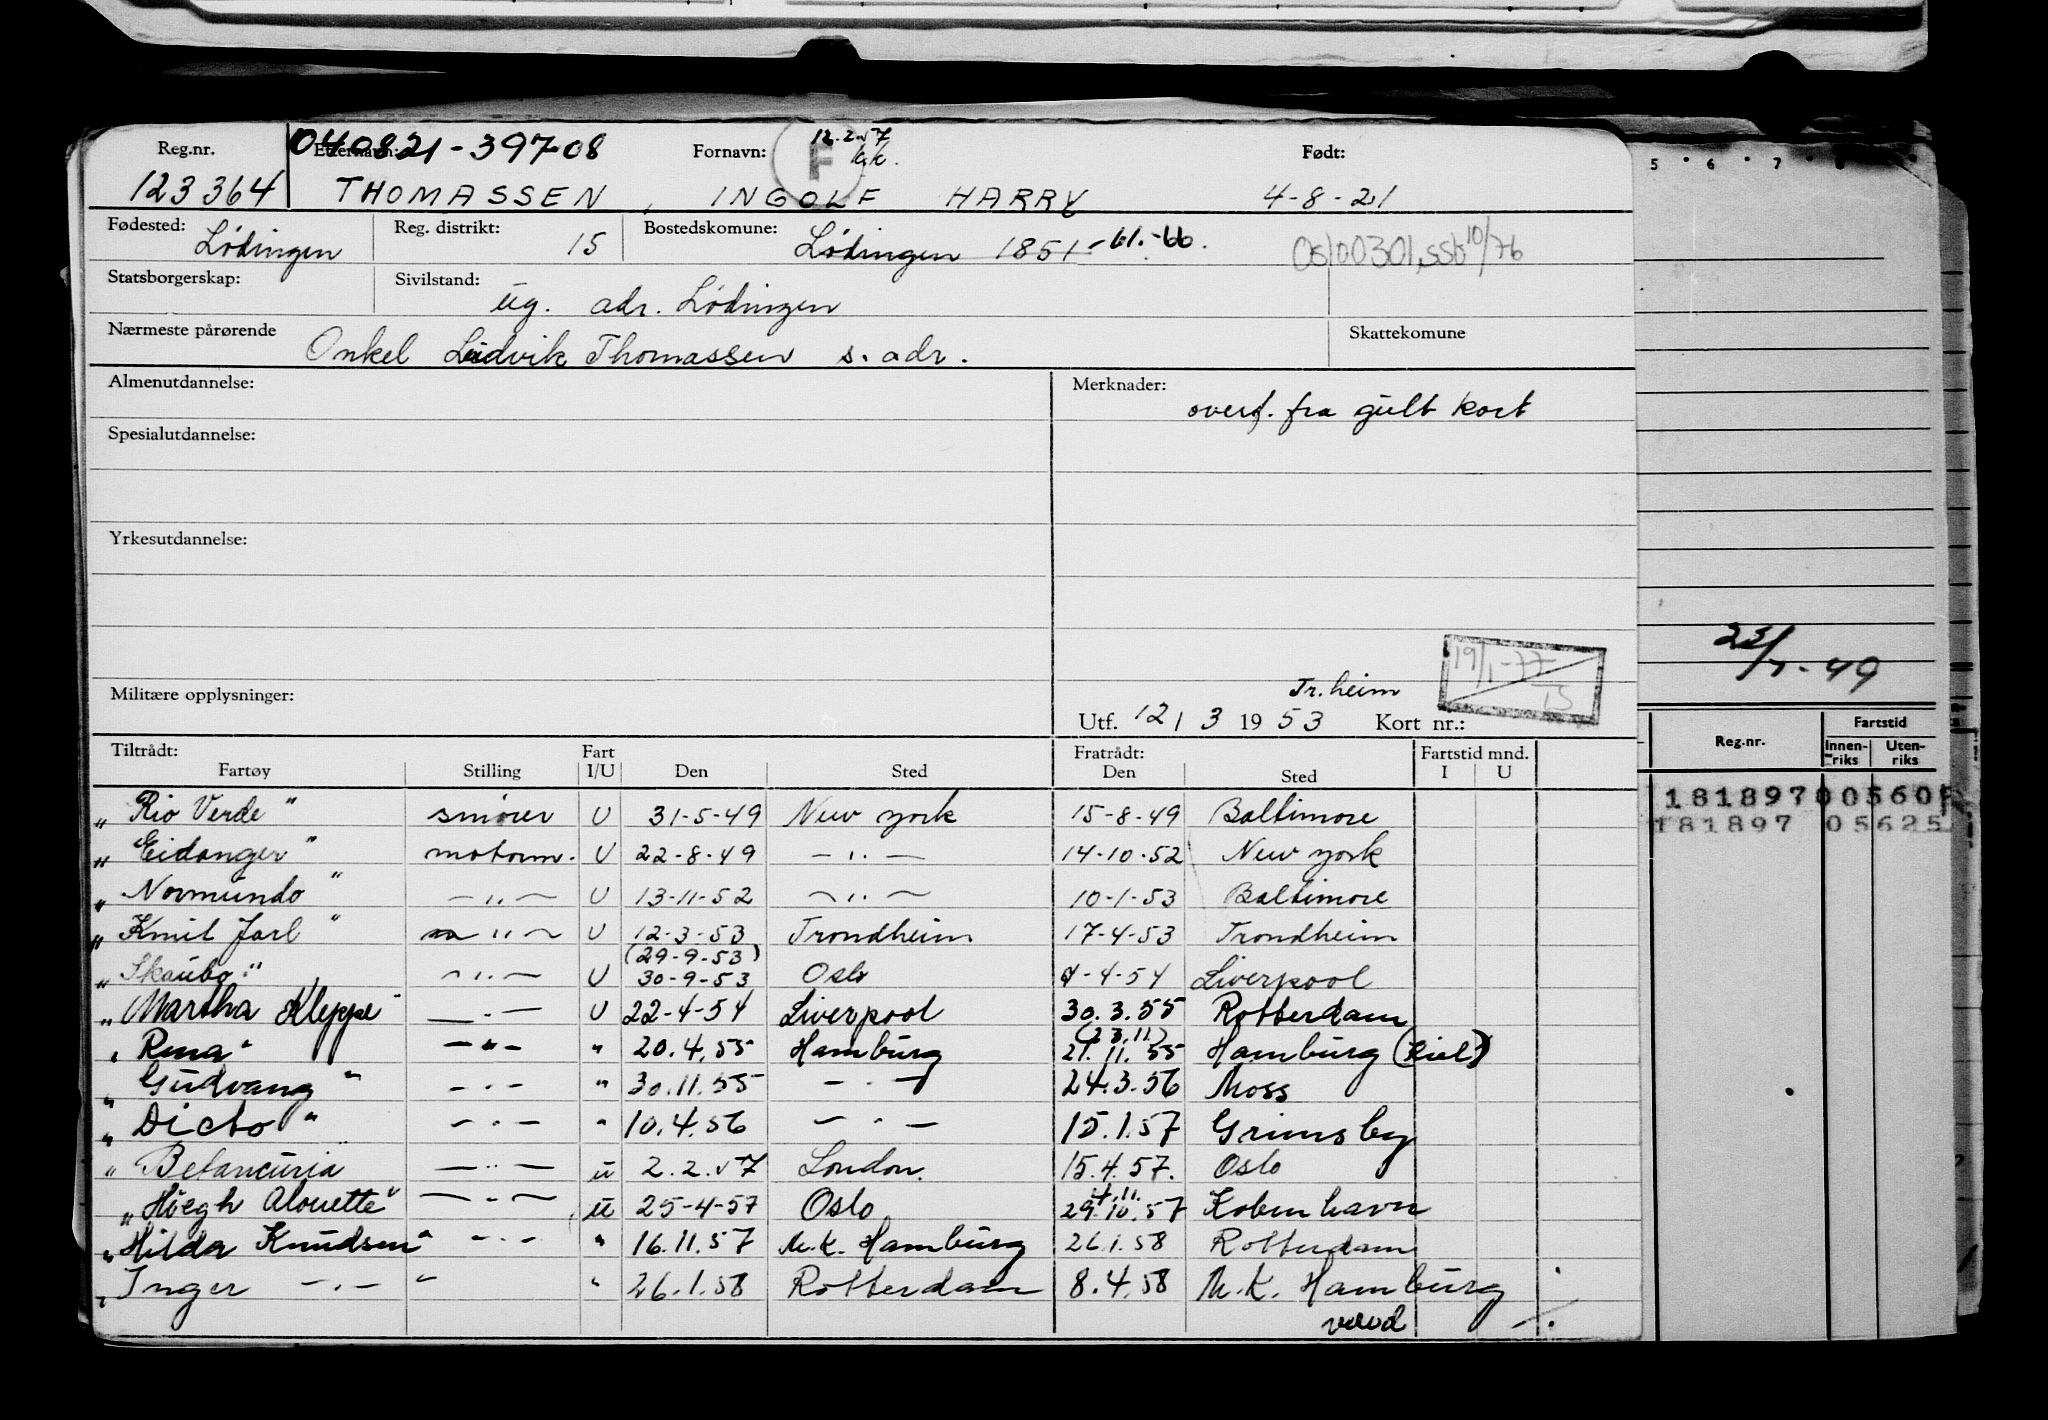 12.2.57
Reg.nr. 040821-39708 Etternavn: Fornavn: F kk. Født:
123364 THOMASSEN, INGOLF HARRY 4-8-21
Fødested: Lødingen Reg. distrikt: 15 Bostedskomune: Lødingen 1851 -61.-66. Oslo 0301, ssb 10/76
Statsborgerskap: Sivilstand: ug. adr. Lødingen
Nærmeste pårørende Onkel Ludvik Thomassen s. adr. Skattekomune
Almenutdannelse: Merknader:
overf. fra gult kort
Spesialutdannelse:
Yrkesutdannelse:
19/1-77
Militære opplysninger: Tr.heim
Utf. 12 / 3 19 53 Kort nr.:
Tiltrådt: Fart Fratrådt: Fartstid mnd.
Fartøy Stilling I/U Den Sted Den Sted I U
„Rio Verde" smører U 31-5-49 New york 15-8-49 Baltimore
„Eidanger" motorm. U 22-8-49 — „ — 14-10-52 New york
„Normundo" — „ — U 13-11-52 — „ — 10-1-53 Baltimore
„Knut Jarl" — „ — U 12-3-53 Trondheim 17-4-53 Trondheim
(29-9-53)
„Skaubo" — „ — U 30-9-53 Oslo 4-4-54 Liverpool
„Martha Kleppe" — „ — U 22-4-54 Liverpool 30.3.55 Rotterdam
(23.11)
„Rena" — „ — " 20.4.55 Hamburg 21.11.55 Hamburg (Kiel)
„Gudvang" — „ — " 30.11.55 — „ — 24.3.56 Moss
„Dicto" — „ — " 10.4.56 — „ — 15.1.57 Grimsby
„Betancuria" — „ — u 2.2.57 London. 15.4.57. Oslo
4.11.
„Høegh Alouette" — „ — u 25-4-57 Oslo 29.10.57 Kobenhavn
„Hilda Knudsen" — „ — " 16.11.57 M.K. Hamburg 26.1.58 Rotterdam
„Inger — „ — " " 26.1.58 Rotterdam 8.4.58 M.K. Hamburg
vend ./.
5 • 6 • 7 • 8
23/7-49
Reg.nr. Fartstid
Innen-riks Uten-riks
181897 00560F
181897 05625